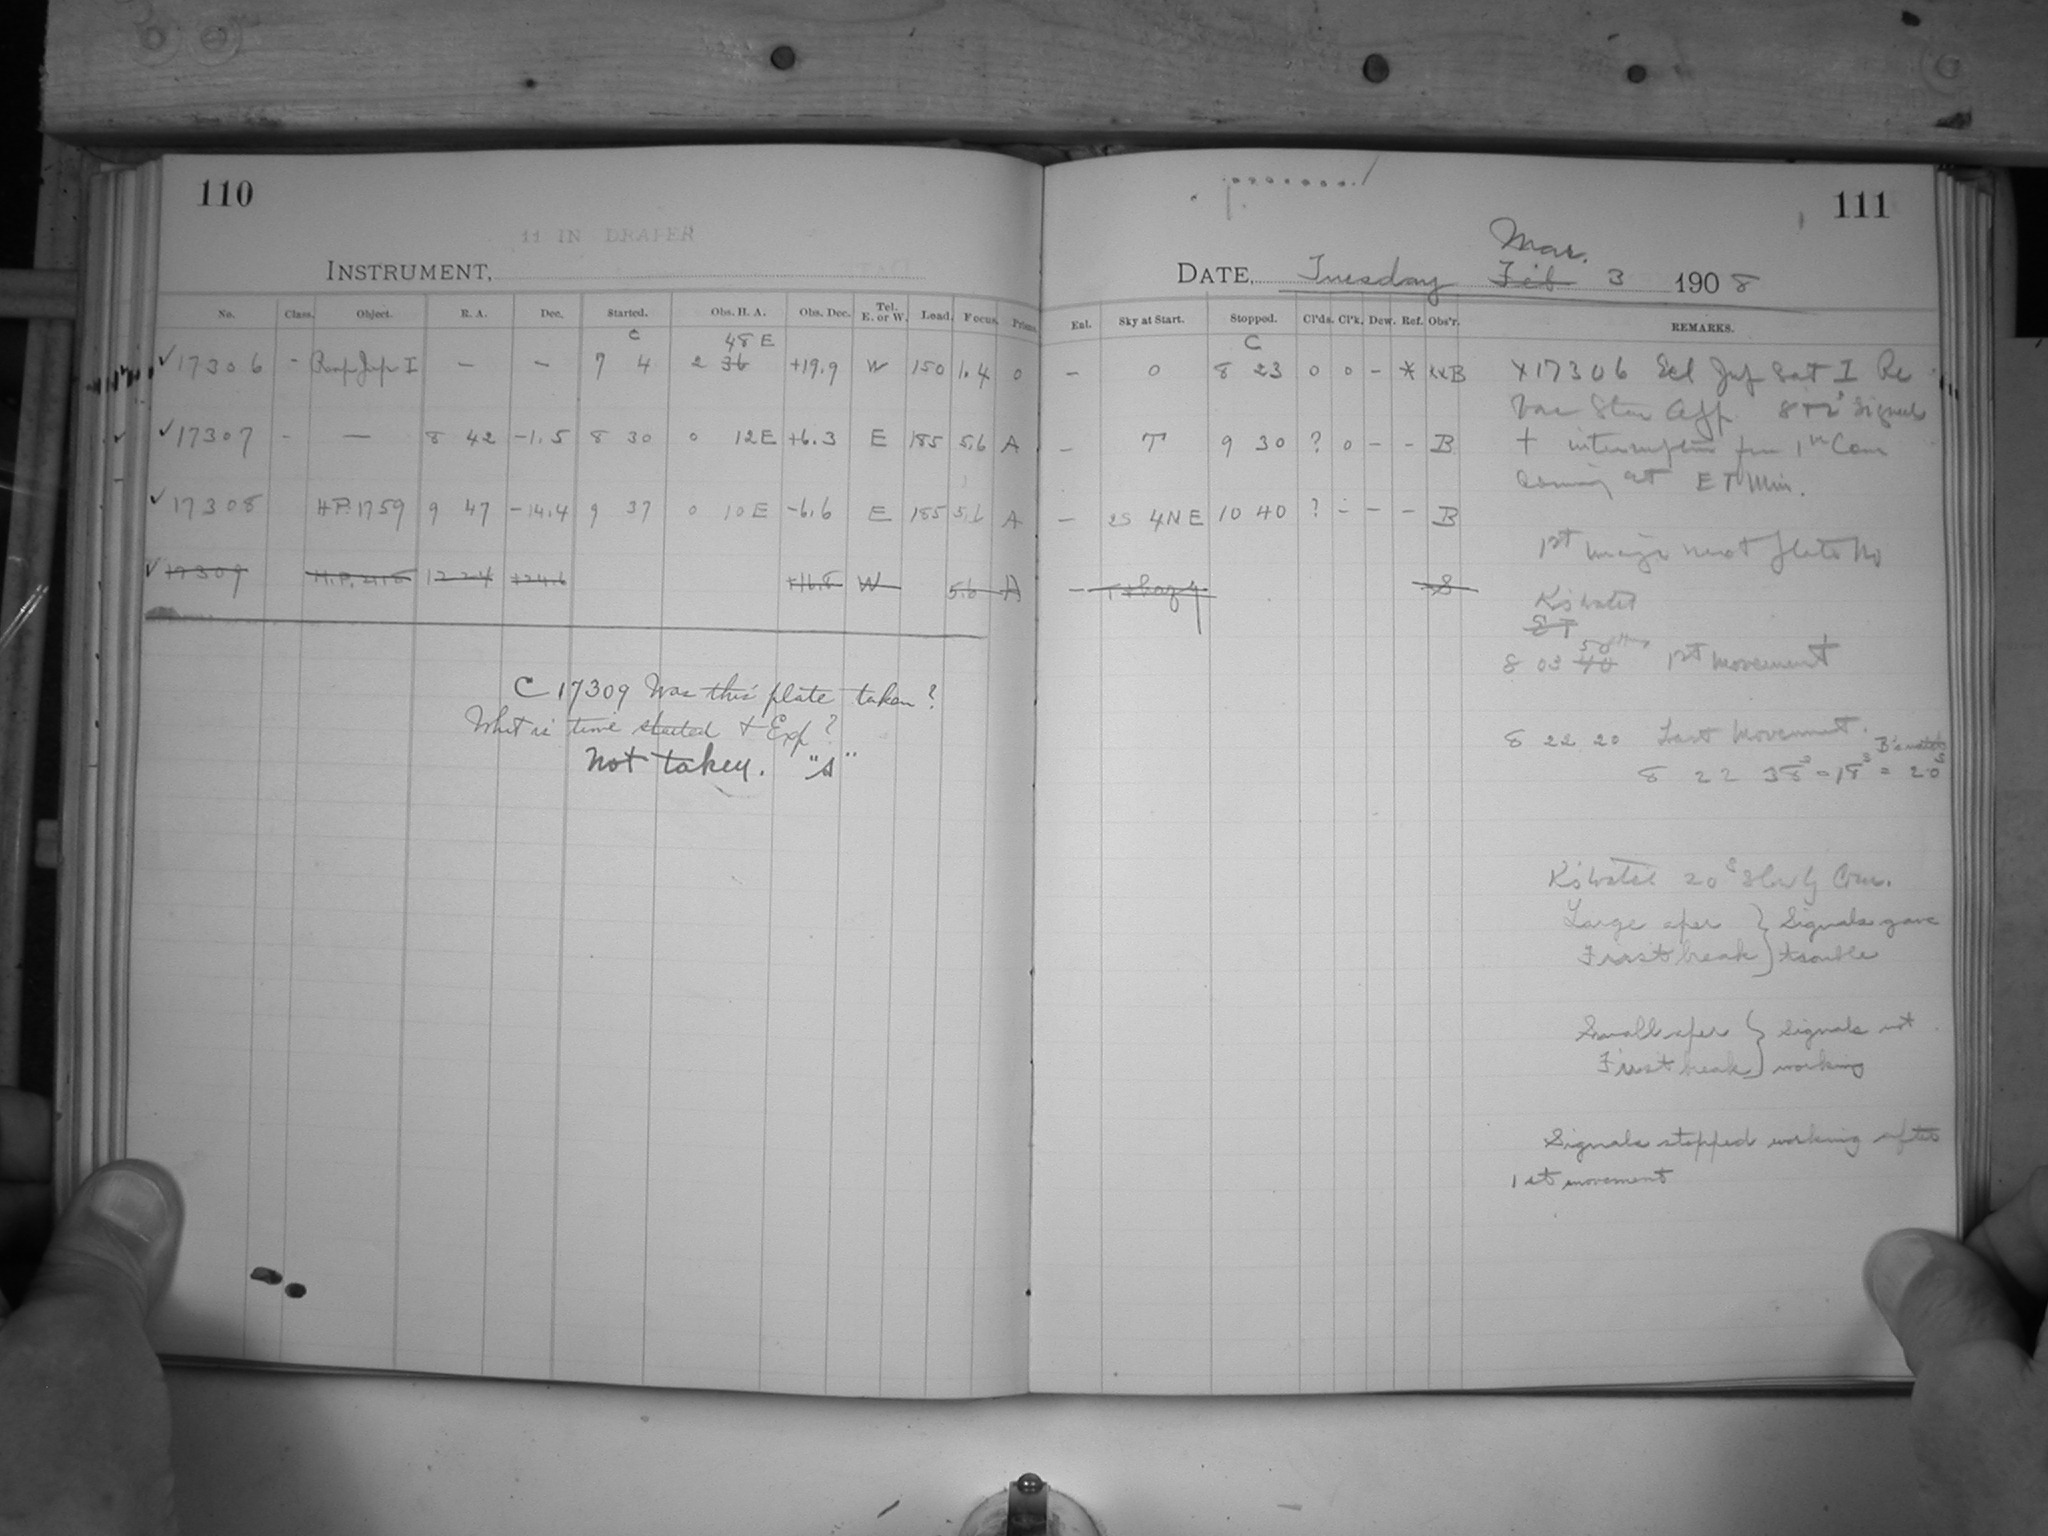 110
11 IN DRAPER
INSTRUMENT,
No. Class. Object. R. A. Dec. Started. Obs. H. A. Obs. Dec. Tel. E. or W. Load. Focus. Prisms.
C 48 E
✓ 17306 - Jup I — — 7 4 2 36 +19.9 W 150 1.4 0
✓ 17307 - — 8 42 -1.5 8 30 0 12E +6.3 E 185 5.6 A
✓ 17308 H.P. 1759 9 47 -14.4 9 37 0 10E -6.6 E 185 5.6 A
✓ 17309 H.P. 12 24 +24.6 +16.8 W 5.6 A
C 17309 Was this plate taken?
What is time started & Exp?
Not taken. "S"
111
Mar.
DATE, Tuesday Feb 3 1908
Ent. Sky at Start. Stopped. Cl'ds. Cl'k. Dew. Ref. Obs'r. REMARKS.
C
- 0 8 23 0 0 - * B
- T 9 30 ? 0 - - B
- 2S 4NE 10 40 ? - - - B
- S
X17306 Ecl Jup Sat I Re
Signals
+ 1st
at E T Min.
1st next plate No
K's watch
E T
58
8 03 40 1st movement
8 22 20 Last Movement.
B's watch
8 22 38s - 18s = 20s
K's watch 20s
Large aper } Signals gave
First break } trouble
Small aper } Signals not
First break } working
Signals stopped working after
1st movement